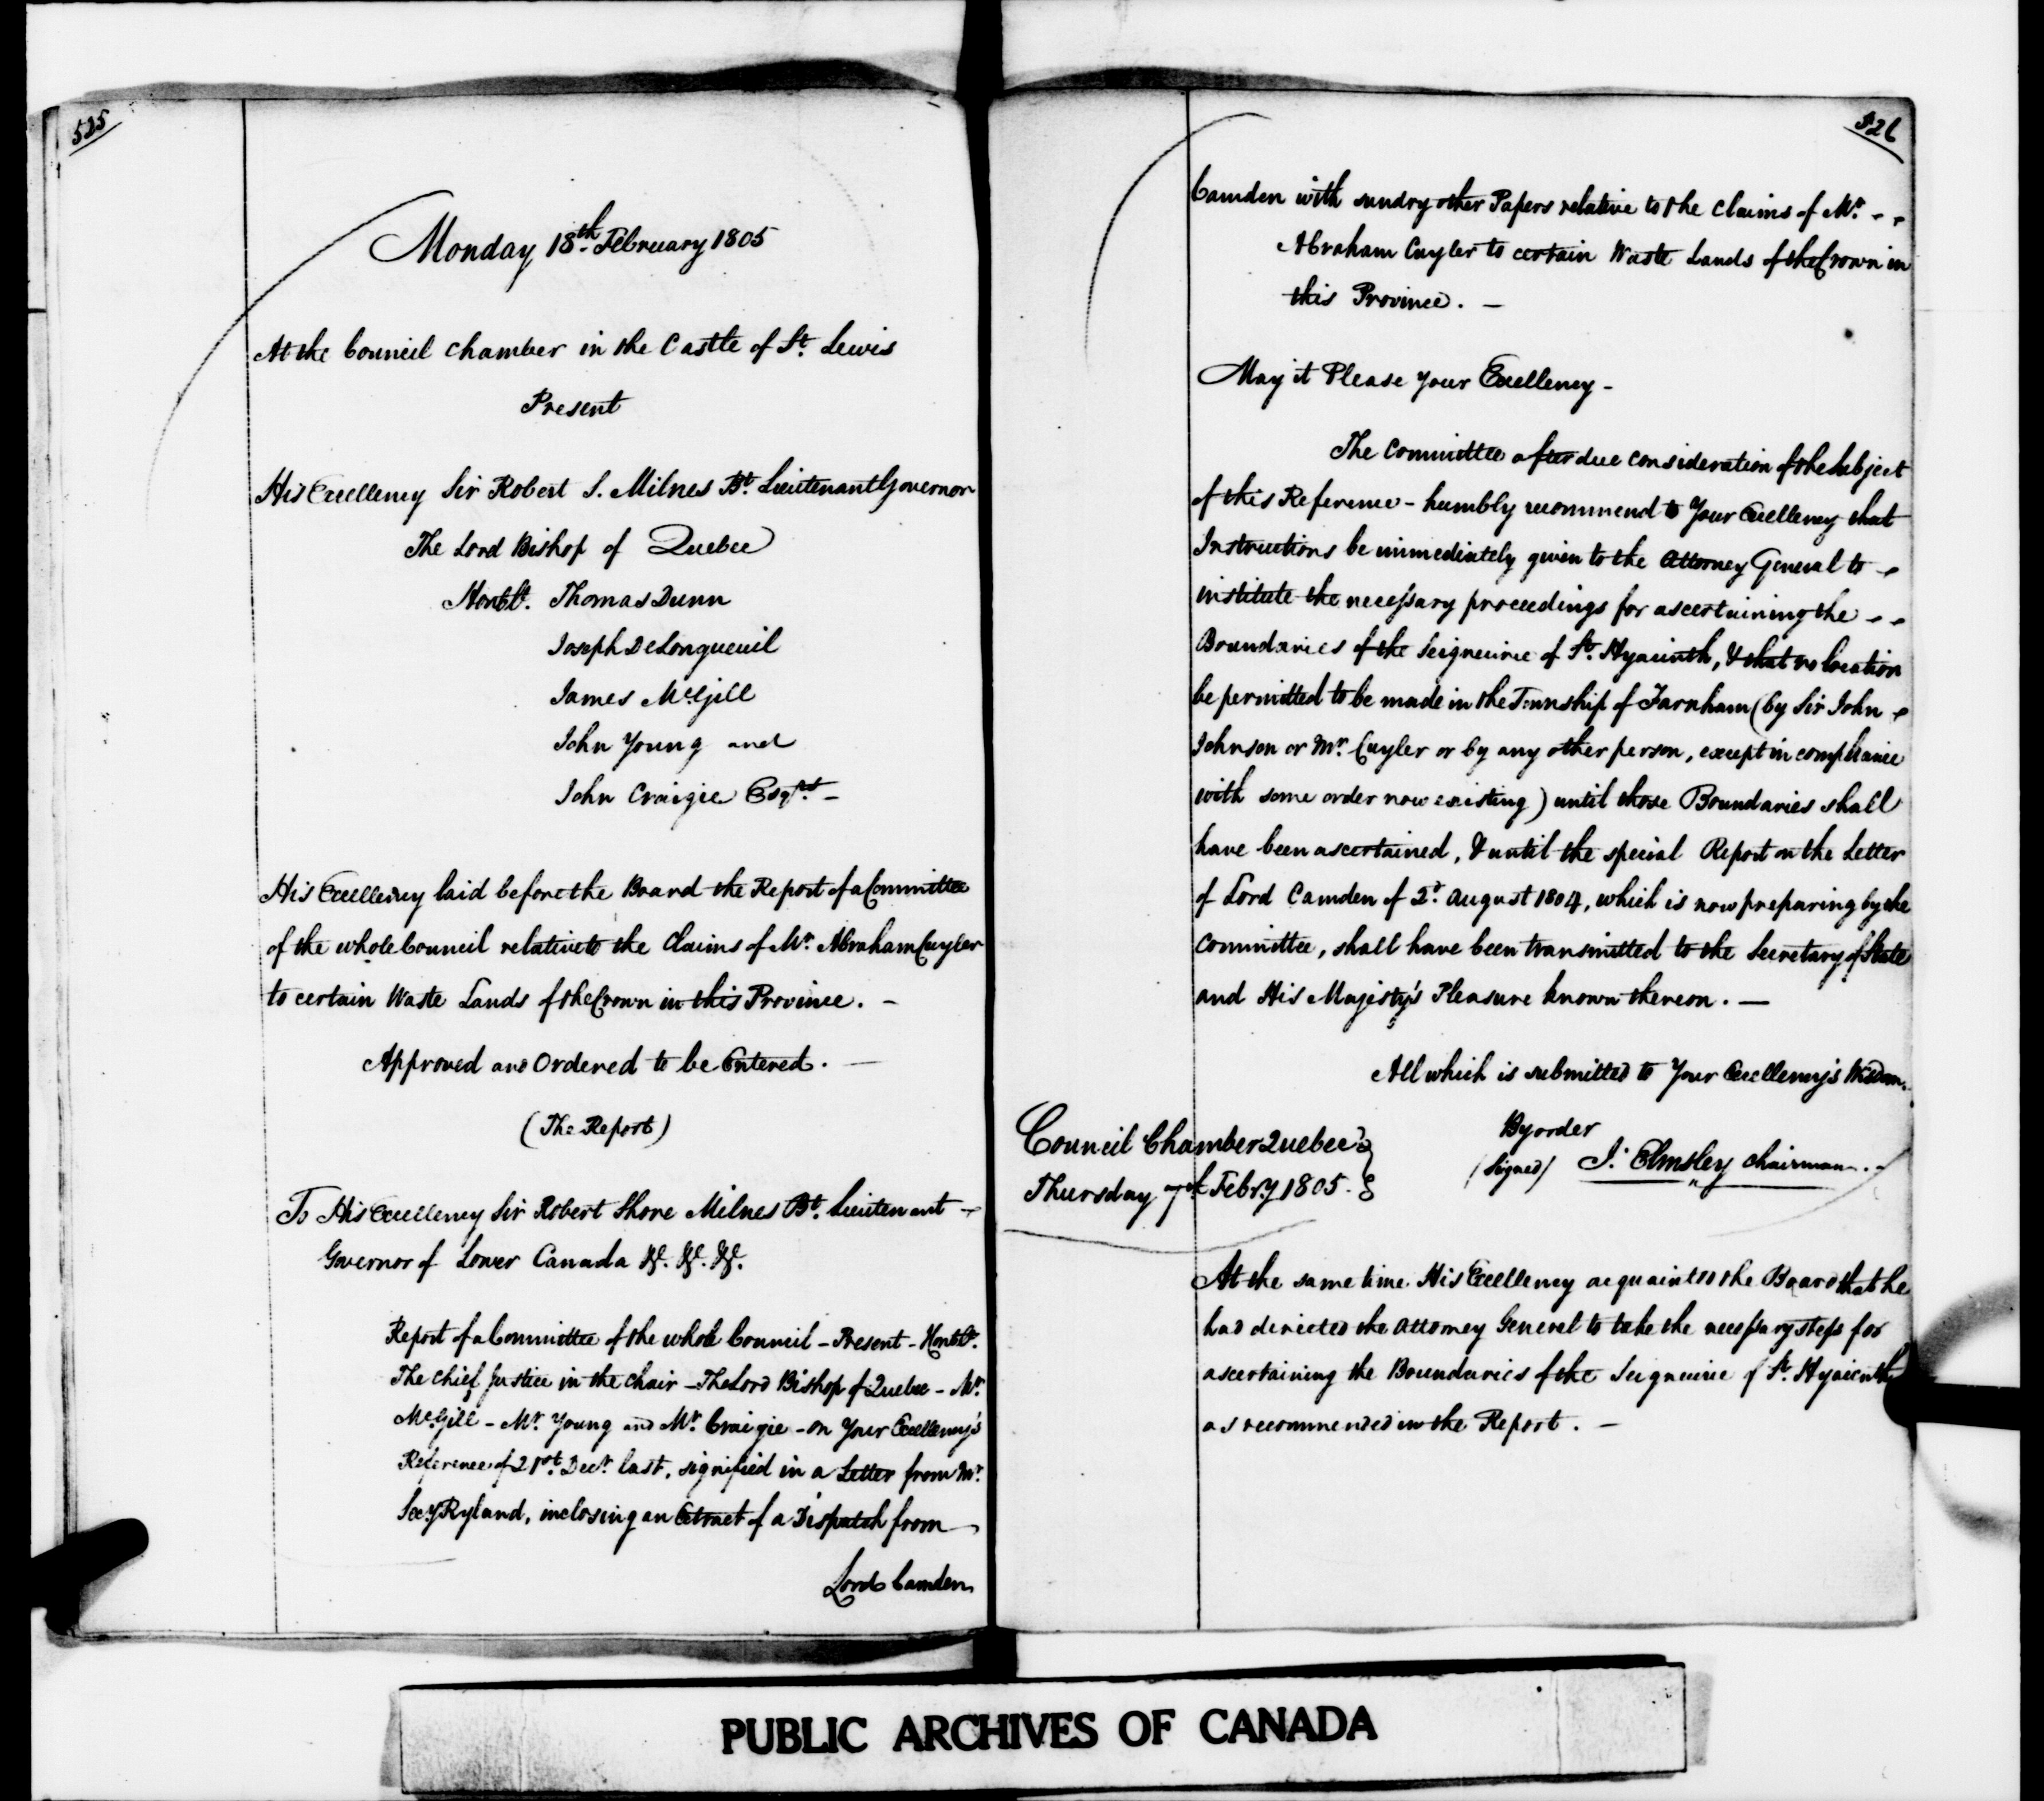 525
Monday 18th. February 1805
At the Council Chamber in the Castle of St. Lewis
Present
His Excellency Sir Robert S. Milnes Bt. Lieutenant Governor
The Lord Bishop of Quebec
Honble. Thomas Dunn
Joseph DeLongueuil
James McGill
John Young and
John Craigie Esqrs. -
His Excellency laid before the Board the Report of a Committee
of the whole Council relative to the Claims of Mr. Abraham Cuyler
to certain Waste Lands of the Crown in this Province. -
Approved and Ordered to be Entered. -
(The Report)
To His Excellency Sir Robert Shore Milnes Bt. Lieutenant -
Governor of Lower Canada &c. &c. &c.
Report of a Committee of the whole Council - Present - Honble.
The Chief Justice in the Chair - The Lord Bishop of Quebec - Mr.
McGill - Mr. Young and Mr. Craigie - on Your Excellency's
Reference of 21st. Decr. last, signified in a Letter from Mr.
Secy Ryland, inclosing an Extract of a Dispatch from
Lord Camden
526
Camden with sundry other Papers relative to the Claims of Mr. - -
Abraham Cuyler to certain Waste Lands of the Crown in
this Province. -
May it Please Your Excellency -
The Committee after due consideration of the Subject
of this Reference - humbly recommend to Your Excellency that
Instructions be immediately given to the Attorney General to -
institute the necessary proceedings for ascertaining the - -
Boundaries of the Seigneurie of St. Hyacinth, & that no location
be permitted to be made in the Township of Farnham (by Sir John -
Johnson or Mr. Cuyler or by any other person, except in compliance
with some order now existing) until those Boundaries shall
have been ascertained, & until the special Report on the Letter
of Lord Camden of 2d. August 1804, which is now preparing by the
Committee, shall have been transmitted to the Secretary of State
and His Majesty's Pleasure known thereon. -
All which is submitted to Your Excellency's Wisdom.
By order
(Signed) J. Elmsley Chairman. -
Council Chamber Quebec }
Thursday 7th Febry. 1805. }
At the same time His Excellency acquainted the Board that he
had directed the Attorney General to take the necessary steps for
ascertaining the Boundaries of the Seigneurie of St. Hyacinth
as recommended in the Report. -
PUBLIC ARCHIVES OF CANADA